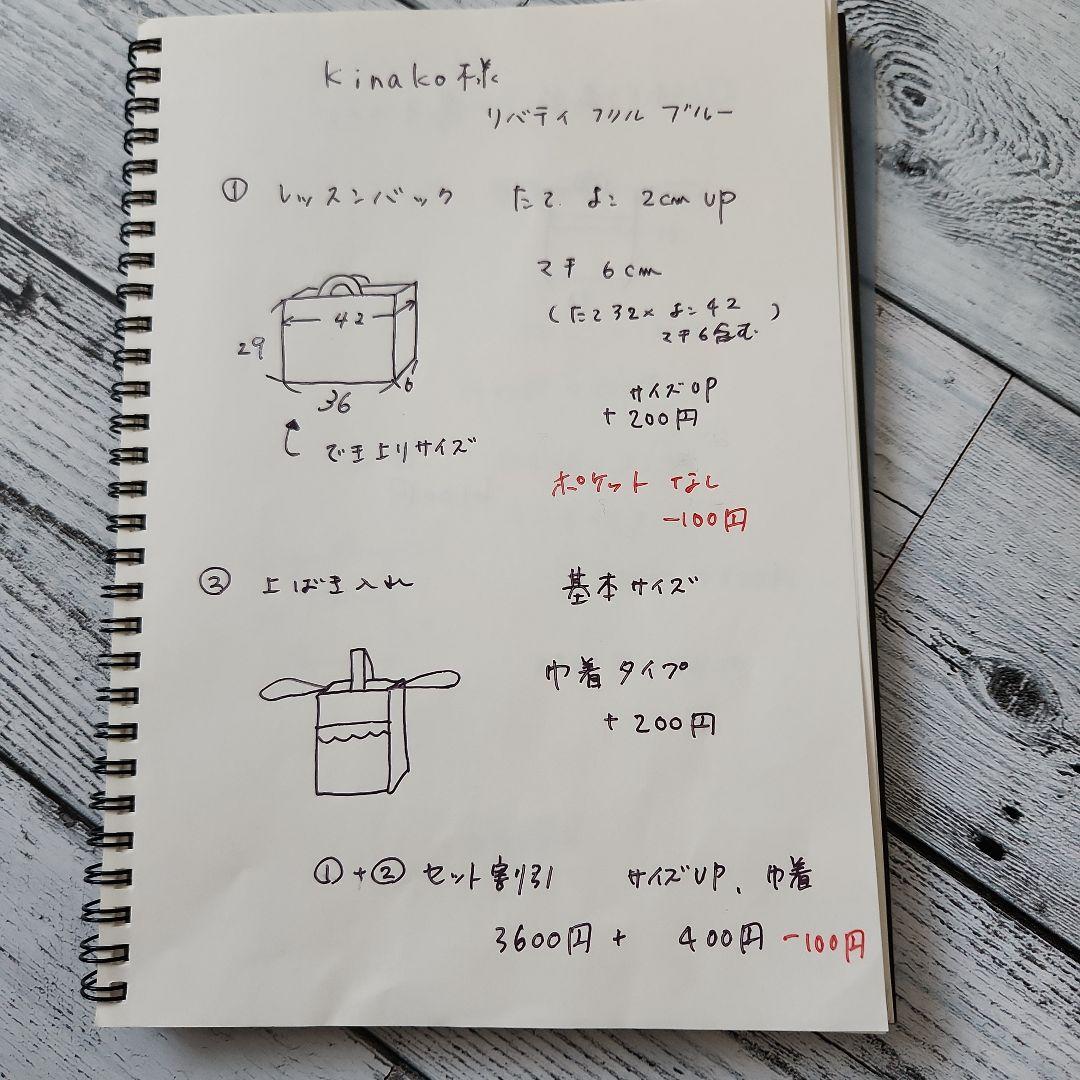 kinako様
リバティ フリル ブルー
① レッスンバック たて よこ 2cm up
マチ 6cm
(たて32× よこ42
マチ6含む)
42
29
36
6
サイズup
+ 200円
でき上りサイズ
ポケット なし
-100円
② 上ばき入れ 基本サイズ
巾着タイプ
+ 200円
①+② セット割引 サイズup、巾着
3600円 + 400円 -100円